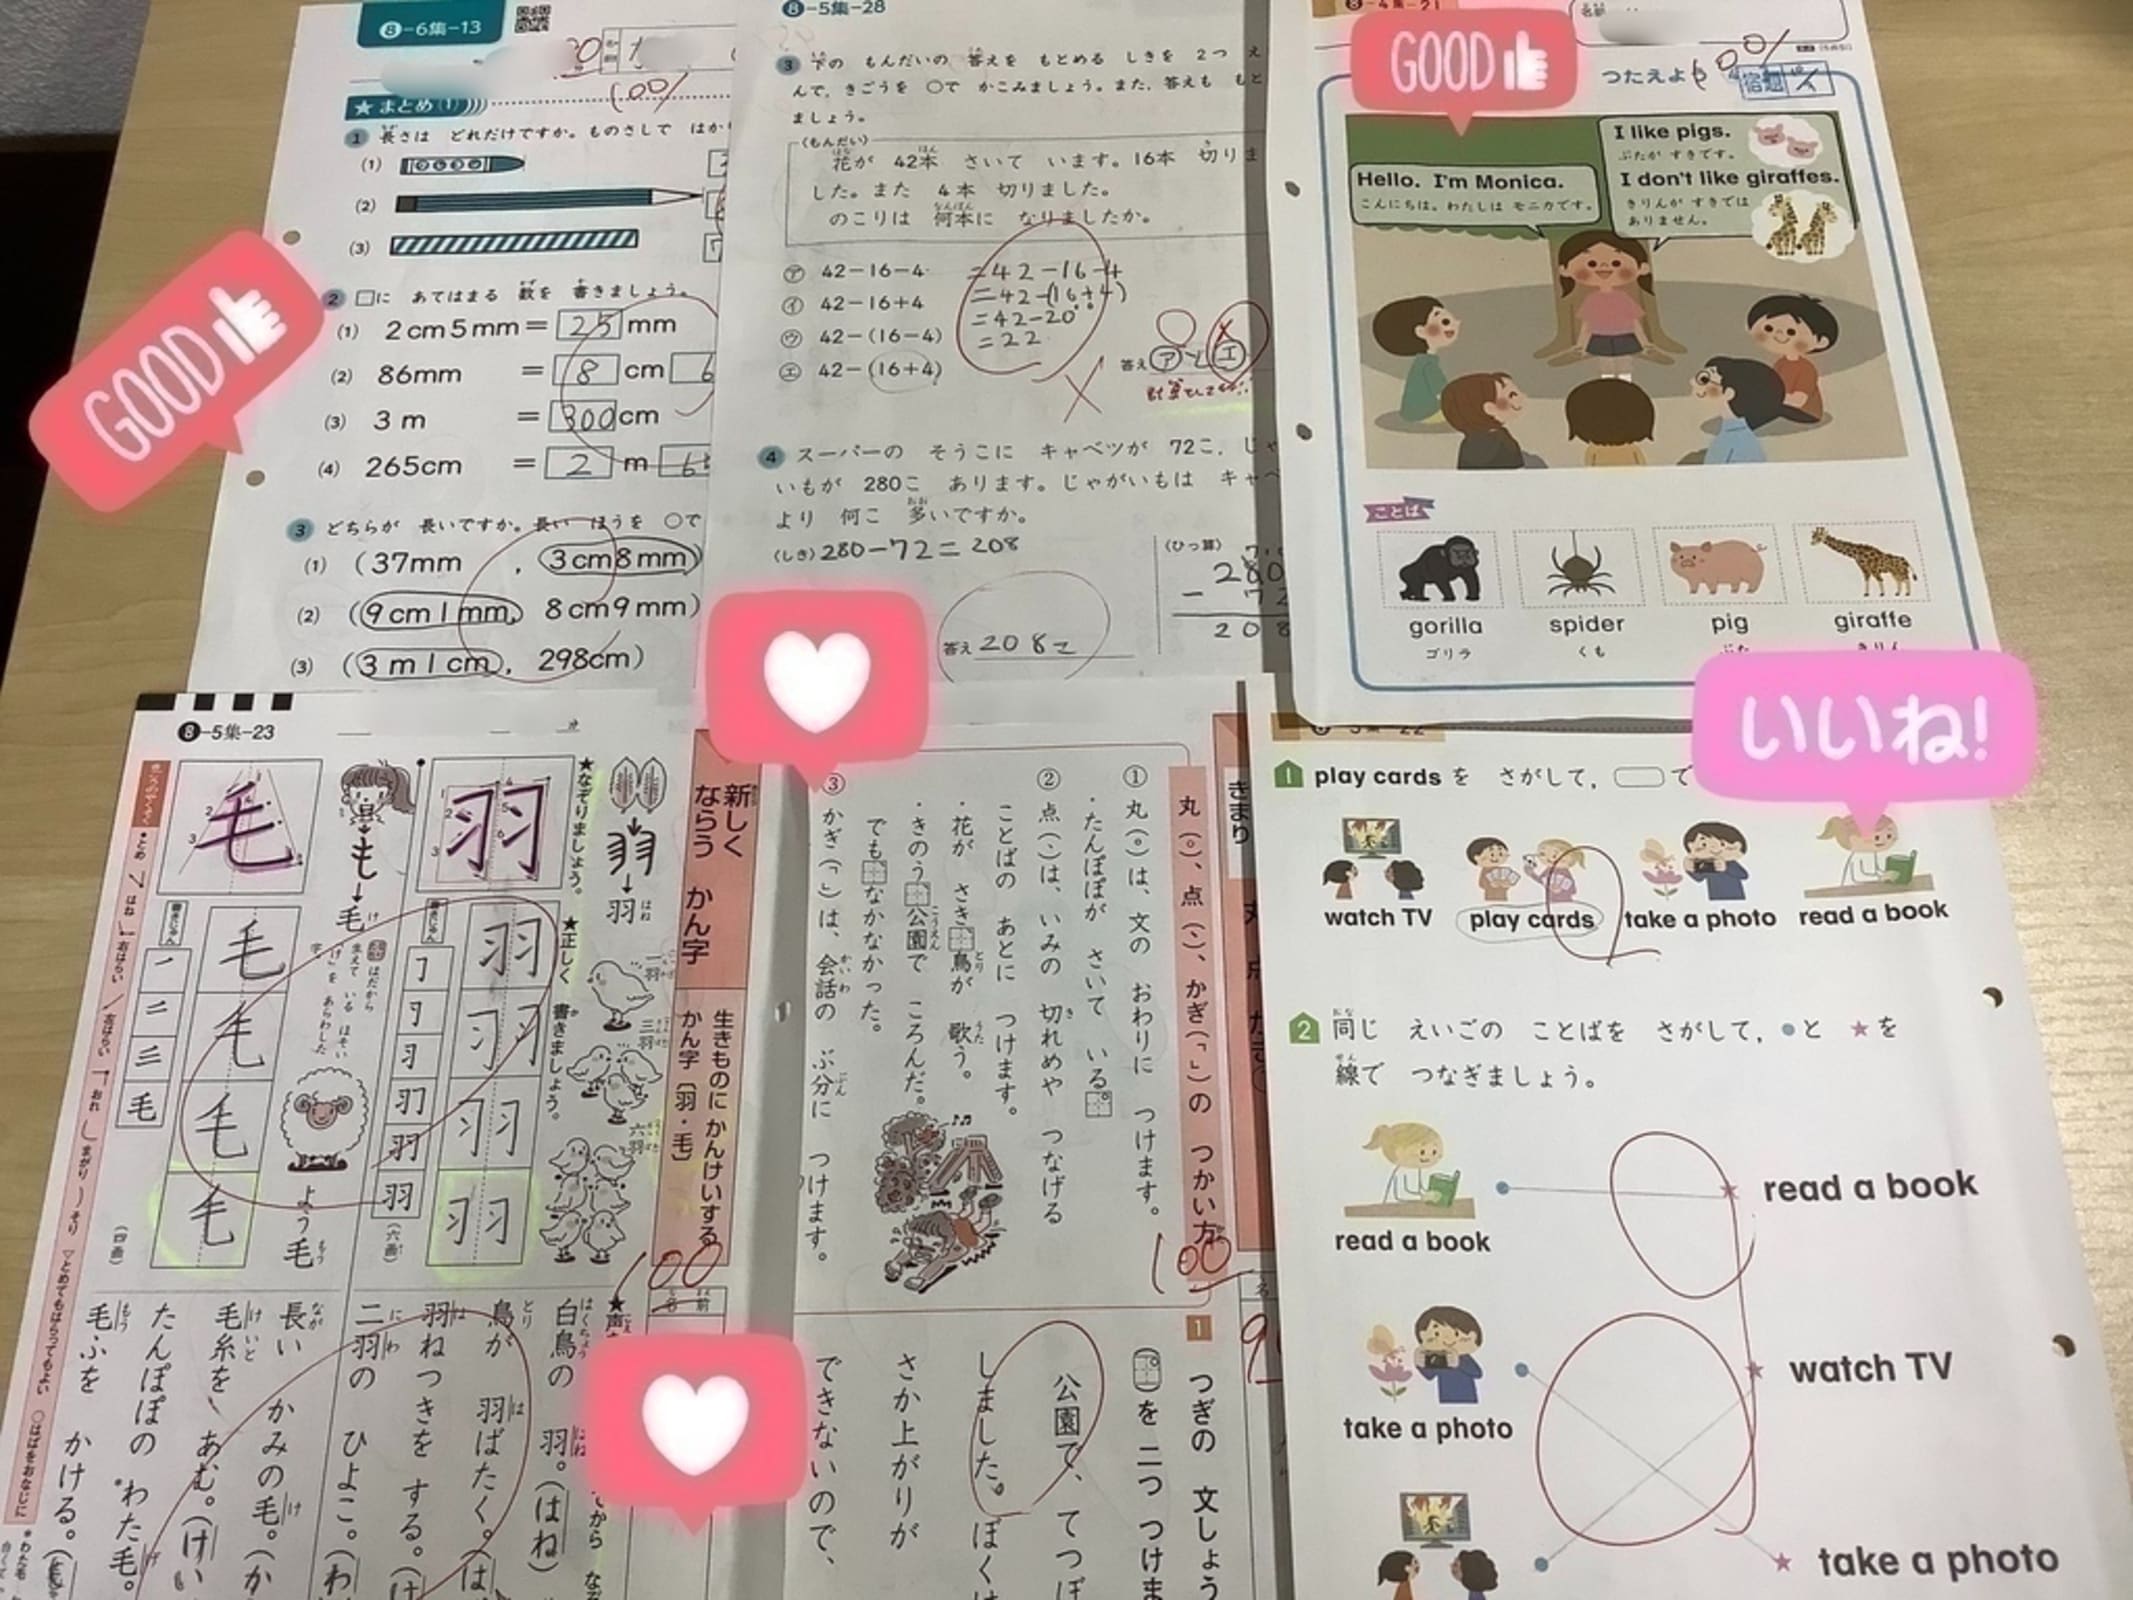 8-6集-13
100%
★まとめ(1)
1 長さは どれだけですか。ものさしで はか
(1)
(2)
(3)
2 □に あてはまる 数を 書きましょう。
(1) 2cm5mm=25mm
(2) 86mm =8cm 6
(3) 3m =300cm
(4) 265cm =2m 65
3 どちらが 長いですか。長い ほうを ○で
(1) (37mm , 3cm8mm)
(2) (9cm1mm, 8cm9mm)
(3) (3m1cm, 298cm)
GOOD
8-5集-28
3 下の もんだいの 答えを もとめる しきを 2つ え
んで、きごうを ○で かこみましょう。また、答えも もと
ましょう。
(もんだい)
花が 42本 さいて います。16本 切りま
した。また 4本 切りました。
のこりは 何本に なりましたか。
ア 42-16-4
イ 42-16+4
ウ 42-(16-4)
エ 42-(16+4)
=42-16-4
=42-(16+4)
=42-20
=22
答え アとエ
4 スーパーの そうこに キャベツが 72こ、じゃ
いもが 280こ あります。じゃがいもは キャベ
より 何こ 多いですか。
(しき) 280-72=208
(ひっ算)
280
- 72
208
答え 208こ
8-4集-21
名前
GOOD
つたえよ
100%
宿題
Hello. I'm Monica.
こんにちは。わたしは モニカです。
I like pigs.
ぶたが すきです。
I don't like giraffes.
きりんが すきでは
ありません。
ことば
gorilla
ゴリラ
spider
くも
pig
ぶた
giraffe
きりん
いいね!
8-5集-23
★なぞりましょう。
★正しく 書きましょう。
羽
羽
はね
一羽
三羽
六羽
羽
羽
羽
羽
羽
書きじゅん
(六画)
毛
も
毛
け
はだから
生えて いる ほそい
「け」を あらわした
字
よう毛
毛
毛
毛
毛
毛
書きじゅん
(四画)
とめ はね 右はらい 左はらい おれ まがり そり
新しく
ならう かん字
生きものに かんけいする
かん字〔羽・毛〕
100
名前
白鳥の 羽。(はね)
鳥が 羽ばたく。(は
羽ねつきを する。(は
二羽の ひよこ。(わ
長い かみの毛。(か
毛糸を、あむ。(けい
たんぽぽの わた毛。
毛ふを かける。(も
きまり
丸(。)、点(、)、かぎ(「」)の つかい方
① 丸(。)は、文の おわりに つけます。
・たんぽぽが さいて いる。
② 点(、)は、いみの 切れめや つなげる
ことばの あとに つけます。
・花が さき、鳥が 歌う。
・きのう、公園で ころんだ。
でも、なかなかった。
③ かぎ(「」)は、会話の ぶ分に つけます。
100
1 つぎの 文しょう
(。)を 二つ つけま
公園で、てつぼ
しました。ぼくは
さか上がりが
できないので、
1 play cards を さがして、 で
watch TV
play cards
take a photo
read a book
2 同じ えいごの ことばを さがして、●と ★を
線で つなぎましょう。
read a book
read a book
take a photo
watch TV
take a photo